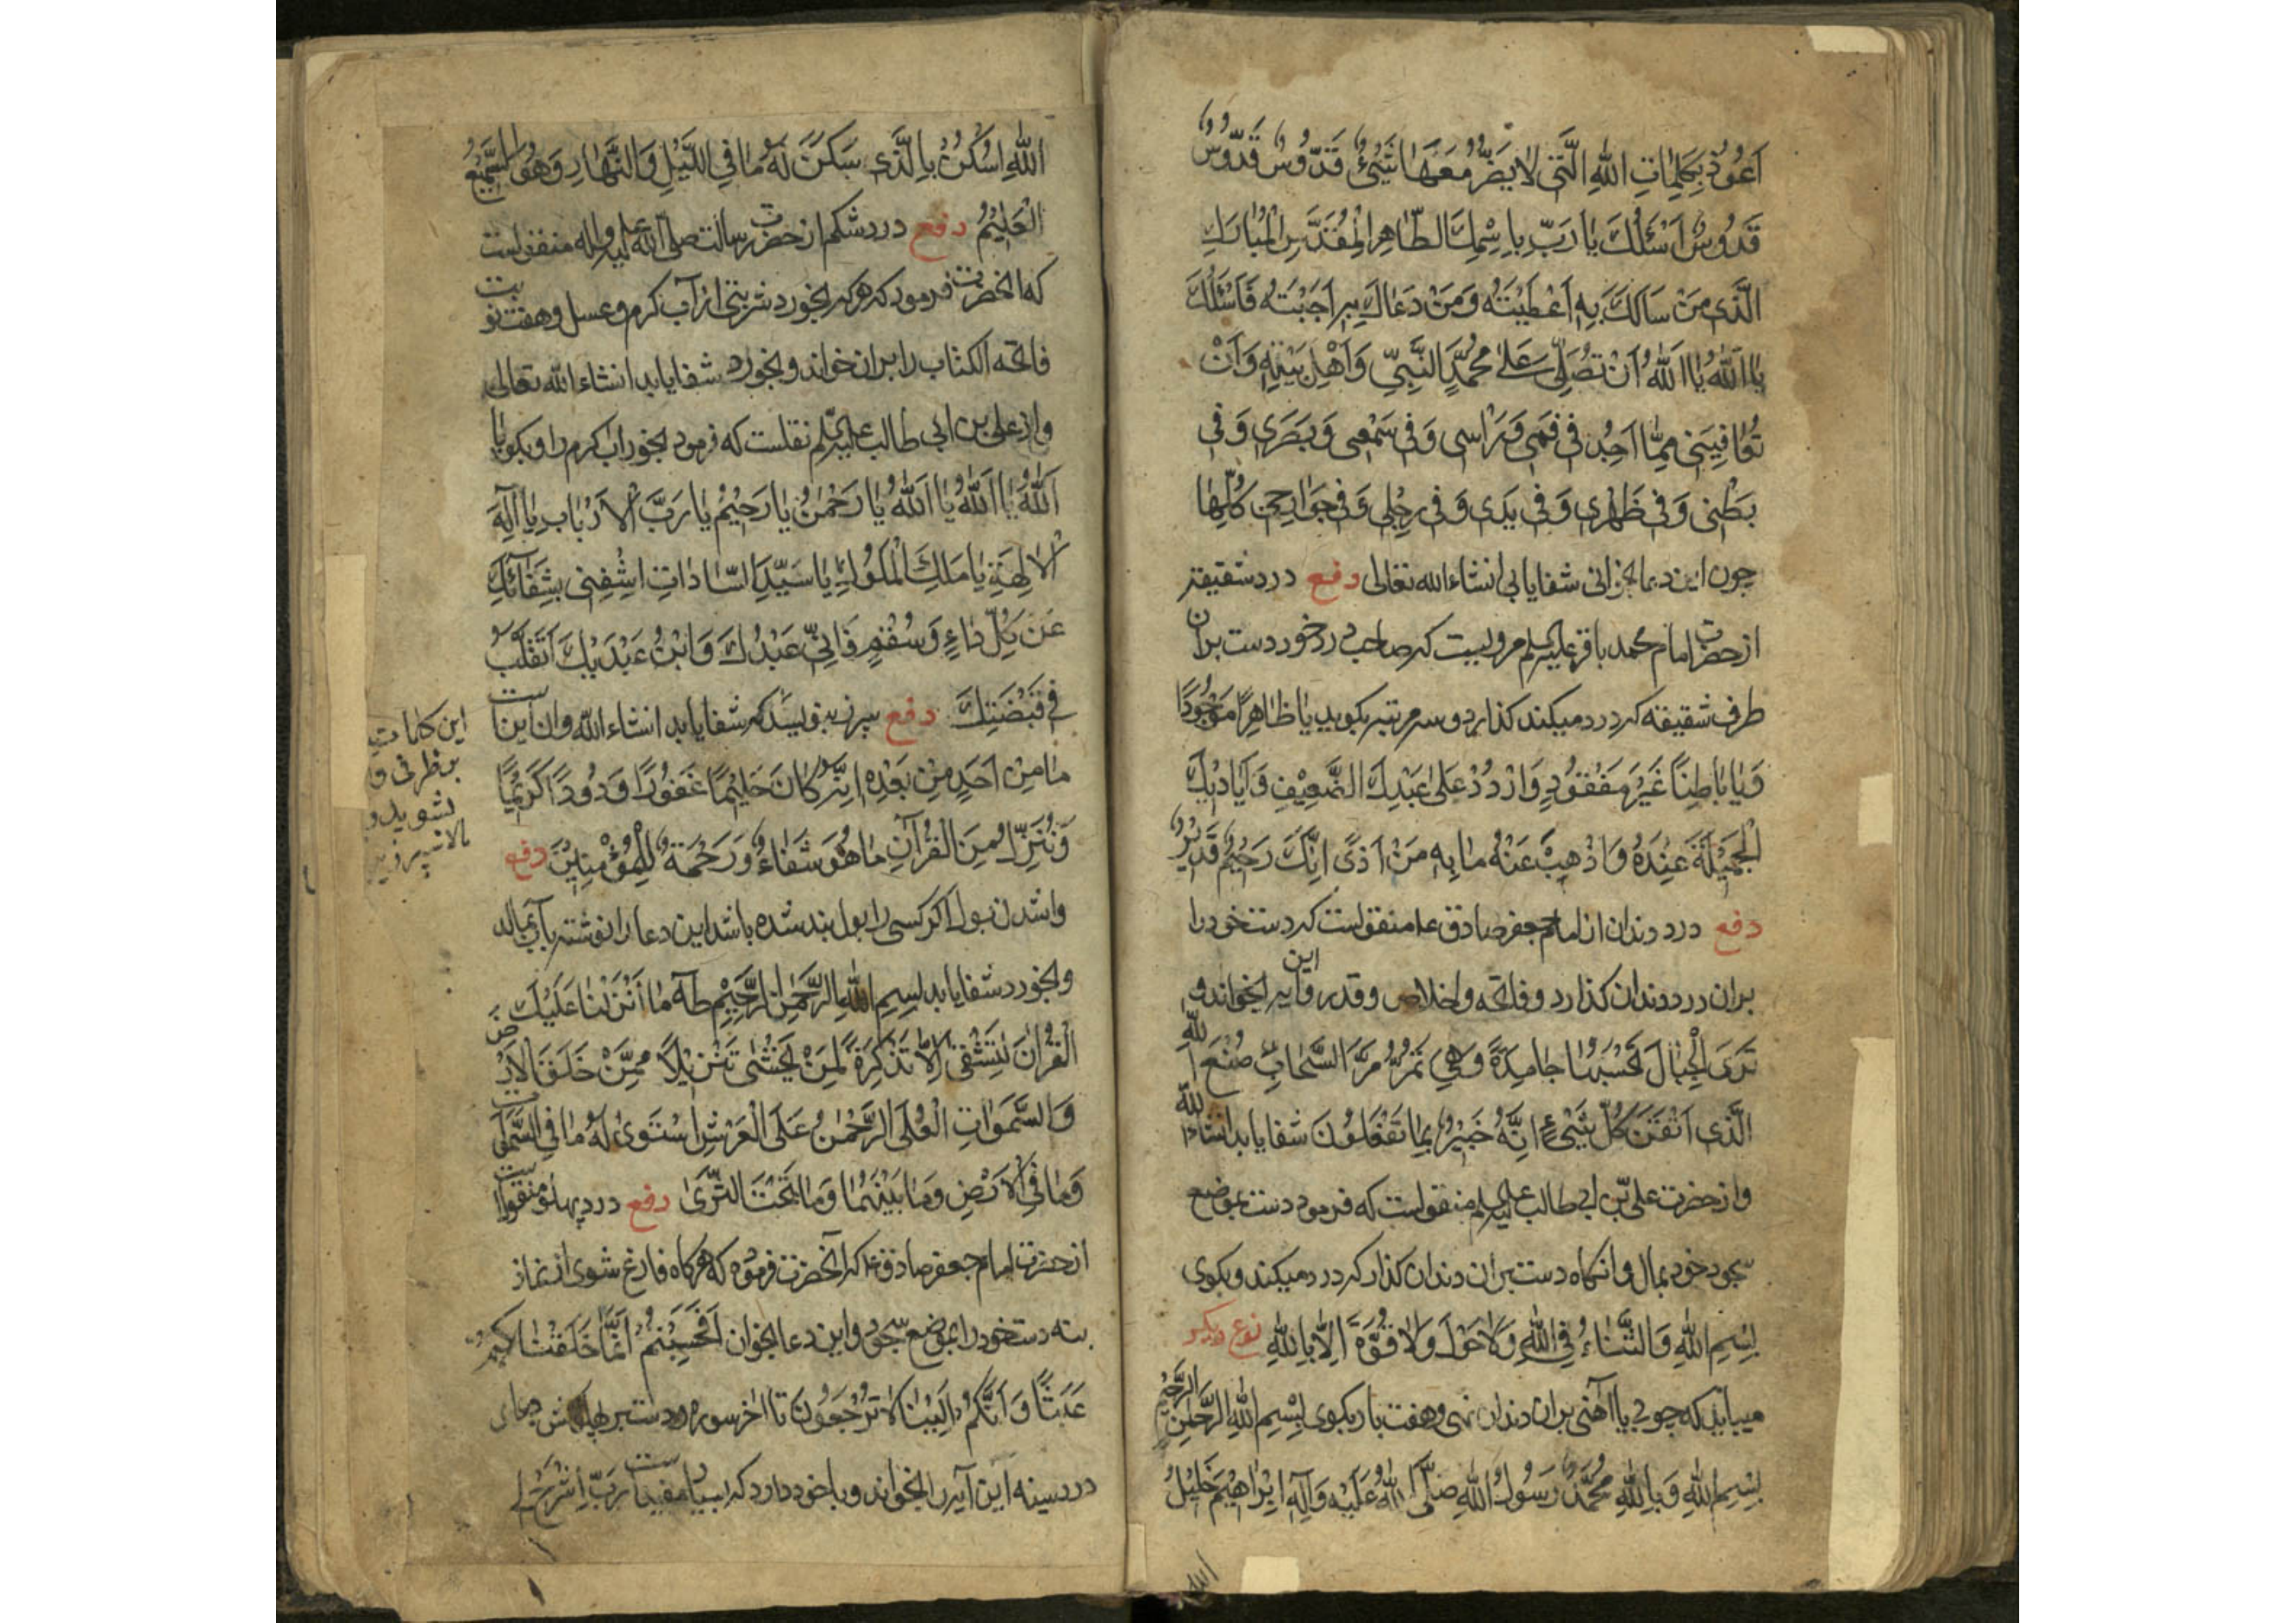 اَعُوُذُ بِكَلِمٰاتِ اللّٰهِ الَّتى لٰا يَضُرُّ مَعَهٰا شَيْئٌ قَدُّوُسٌ قَدُّوُسٌ
قَدُّوُسٌ اَسْئَلُكَ يٰا رَبِّ بِاِسْمِكَ الطّٰاهِرِ الْمُقَدَّسِ الْمُبٰارَكِ
الَّذى مَنْ سَالَكَ بِهِ اَعْطَيْتَهُ وَمَنْ دَعٰاكَ بِهِ اَجَبْتَهُ فَاَسْئَلُكَ
يٰا اَللّٰهُ يٰا اَللّٰهُ اَنْ تُصَلِّىَ عَلىٰ مُحَمَّدٍ النَّبِىِّ وَاَهْلِ بَيْتِهِ وَاَنْ
تُعٰافِيَنى مِمّٰا اَجِدُ فى فَمى وَرَاْسى وَفى سَمْعى وَبَصَرى وَفى
بَطْنى وَفى ظَهْرى وَفى يَدى وَفى رِجْلى وَفى جَوٰارِحى كُلِّهٰا
چون این دعا بخوانی شفا یابی انشاء الله تعالی دفع درد شقیقه
از حضرت امام محمد باقر علیه السلم مرویست که صاحب درد خود دست بران
طرف شقیقه که درد میکند کذارد و سه مرتبه بکوید يٰا ظٰاهِرًا مَوْجُودًا
وَيٰا بٰاطِنًا غَيْرَ مَفْقُوُدٍ وَارْدُدْ عَلىٰ عَبْدِكَ الضَّعِيْفِ وَاَيٰاديْكَ
الْجَمْيلَةَ عِنْدَهُ وَاذْهِبْ عَنْهُ مٰا بِهِ مَنْ اَذىً اِنَّكَ رَحْيمٌ قَديْرٌ
دفع درد دندان از امام جعفر صادق ع منقولست که دست خود را
بران درد دندان کذارد و فاتحه و اخلاص و قدر و این آیه بخواند و
تَرَى الْجِبٰالَ تَحْسَبُهٰا جٰامِدَةً وَهِىَ تَمُرُّ مَرَّ السَّحٰابِ صُنْعَ اللّٰهِ
الَّذى اَتْقَنَ كُلَّ شَيْئٍ اِنَّهُ خَبيْرٌ بِمٰا تَفْعَلُوُنَ شفا یابد انشاء الله
و از حضرت علی بن ابی طالب علیه السلم منقولست که فرمود دست بموضع
سجود خود بمال و انکاه دست بران دندان کذار که درد میکند و بکوی
بِسْمِ اللّٰهِ وَالشّفٰاءُ فِى اللّٰهِ وَلٰا حَوْلَ وَلٰا قُوَّةَ اِلّٰا بِاللّٰهِ نوع دیکر
میباید که چوبی یا آهنی بران دندان نهی و هفت بار بکوی بِسْمِ اللّٰهِ الرَّحْمٰنِ الرَّحيْمِ
بِسْمِ اللّٰهِ وَبِاللّٰهِ مُحَمَّدٌ رَسُوُلُ اللّٰهِ صَلَّى اللّٰهُ عَلَيْهِ وَآلِهِ اِبْرٰاهيْمَ خَليْلُ
اللّٰهِ اُسْكُنْ بِالَّذى سَكَنَ لَهُ مٰا فِى اللَّيْلِ وَالنَّهٰارِ وَهُوَ السَّميْعُ
الْعَليْمُ دفع درد شکم از حضرت رسالت صلی الله علیه و اله منقولست
که انحضرت فرمود که هر که بخورد شربتی از آب کرم و عسل و هفت نوبت
فاتحه الکتاب را بران خواند و بخورد شفا یابد انشاء الله تعالی
و از علی بن ابی طالب علیه السلم نقلست که فرمود بخور اب کرم را و بکو یا
اَللّٰهُ يٰا اَللّٰهُ يٰا اَللّٰهُ يٰا رَحْمٰنُ يٰا رَحيْمُ يٰا رَبَّ الْاَرْبٰابِ يٰا اِلٰهَ
الْاٰلِهَةِ يٰا مَلِكَ الْمُلُوُكِ يٰا سَيِّدَ السّٰادٰاتِ اِشْفِنى بِشِفٰائِكَ
عَنْ كُلِّ دٰاءٍ وَسُقْمٍ فَاِنّى عَبْدُكَ وَابْنُ عَبْدَيْكَ اَتَقَلَّبُ
فى قَبْضَتِكَ دفع سپرز بنویسد که شفا یابد انشاء الله و ان اینست
مٰا مِنْ اَحَدٍ مِنْ بَعْدِهِ اِنَّهُ كٰانَ حَليْمًا غَفُوُرًا وَدُودًا كَريْمًا
وَنُنَزِّلُ مِنَ الْقُرْآنِ مٰا هُوَ شَفٰاءٌ وَرَحْمَةٌ لِلْمُؤْمِنيْنَ دفع
وا شدن بول اکر کسی را بول بند شده باشد این دعا را نوشته بآب بمالد
و بخورد شفا یابد بِسْمِ اللّٰهِ الرَّحْمٰنِ الرَّحيْمِ طٰهٰ مٰا اَنْزَلْنٰا عَلَيْكَ
الْقُرْاٰنَ لِتَشْقىٰ اِلّٰا تَذْكِرَةً لِمَنْ يَخْشىٰ تَنْزيْلاً مِمَّنْ خَلَقَ الْاَرْضَ
وَالسَّمٰوٰاتِ الْعُلىٰ الرَّحْمٰنُ عَلَى الْعَرْشِ اسْتَوىٰ لَهُ مٰا فِى السَّمٰوٰاتِ
وَمٰا فِى الْاَرْضِ وَمٰا بَيْنَهُمٰا وَمٰا تَحْتَ الثَّرىٰ دفع درد پهلو منقولست
از حضرت امام جعفر صادق ع که آنحضرت فرموده که هرکاه فارغ شوی از نماز
بنه دست خود را بموضع سجود و این دعا بخوان اَفَحَسِبْتُمْ اَنَّمٰا خَلَقْنٰاكُمْ
عَبَثًا وَاَنَّكُمْ اِلَيْنٰا لٰا تُرْجَعُوُنَ تا اخر سوره و دست بر پهلو کش
درد سینه این آیه را بخواند و با خود دارد که بسیار مفیدست رَبِّ اشْرَحْ لى
این کلمات
بر ظرفی
بشوید و
بالا سپرز